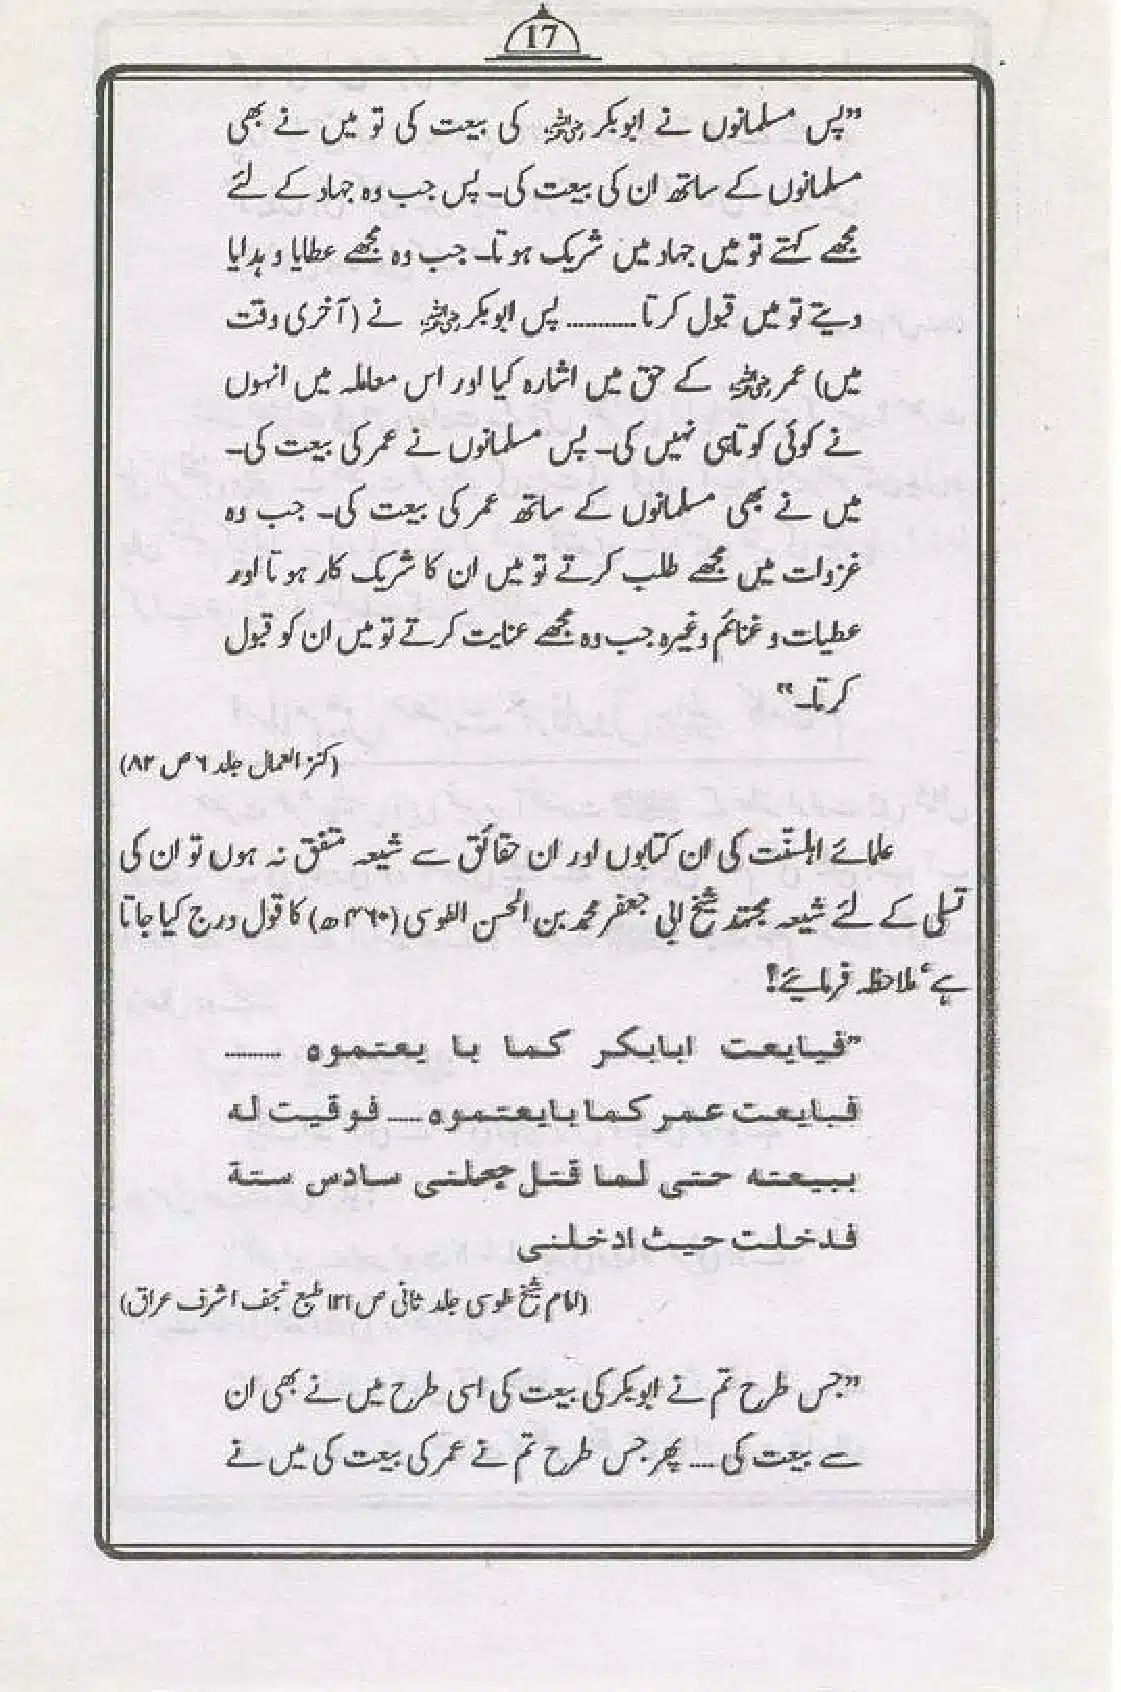 17
”پس مسلمانوں نے ابوبکر رضی اللہ عنہ کی بیعت کی تو میں نے بھی
مسلمانوں کے ساتھ ان کی بیعت کی۔ پس جب وہ جہاد کے لئے
مجھے کہتے تو میں جہاد میں شریک ہوتا۔ جب وہ مجھے عطایا و ہدایا
دیتے تو میں قبول کرتا............ پس ابوبکر رضی اللہ عنہ نے (آخری وقت
میں) عمر رضی اللہ عنہ کے حق میں اشارہ کیا اور اس معاملہ میں انہوں
نے کوئی کوتاہی نہیں کی۔ پس مسلمانوں نے عمر کی بیعت کی۔
میں نے بھی مسلمانوں کے ساتھ عمر کی بیعت کی۔ جب وہ
غزوات میں مجھے طلب کرتے تو میں ان کا شریک کار ہوتا اور
عطیات و غنائم وغیرہ جب وہ مجھے عنایت کرتے تو میں ان کو قبول
کرتا۔“
(کنز العمال جلد ۶ ص ۸۲)
علمائے اہلسنّت کی ان کتابوں اور ان حقائق سے شیعہ متفق نہ ہوں تو ان کی
تسلی کے لئے شیعہ مجتہد شیخ ابی جعفر محمد بن الحسن الطوسی (۴۶۰ھ) کا قول درج کیا جاتا
ہے‘ ملاحظہ فرمائیے!
”فیایعت ابابکر کما با یعتموہ ..........
فبایعت عمر کما بایعتموہ ..... فوقیت لہ
ببیعتہ حتی لما قتل جعلنی سادس ستة
فدخلت حیث ادخلنی
(امام شیخ طوسی جلد ثانی ص ۱۲۱ طبع نجف اشرف عراق)
”جس طرح تم نے ابوبکر کی بیعت کی اسی طرح میں نے بھی ان
سے بیعت کی .... پھر جس طرح تم نے عمر کی بیعت کی میں نے